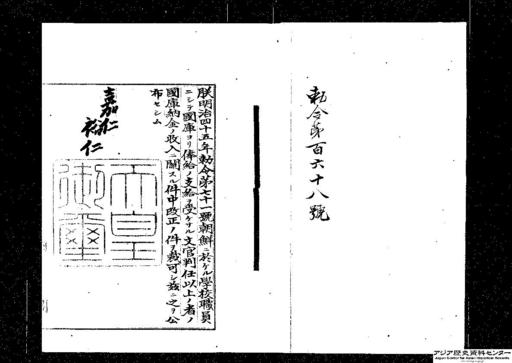 勅令第百六十八號
朕明治四十五年勅令第七十一號朝鮮ニ於ケル學校職員
ニシテ國庫ヨリ俸給ノ支給ヲ受ケサル文官判任以上ノ者ノ
國庫納金ノ收入ニ關スル件中改正ノ件ヲ裁可シ茲ニ之ヲ公
布セシム
嘉仁
裕仁
天皇
御璽
アジア歴史資料センター
Japan Center for Asian Historical Records